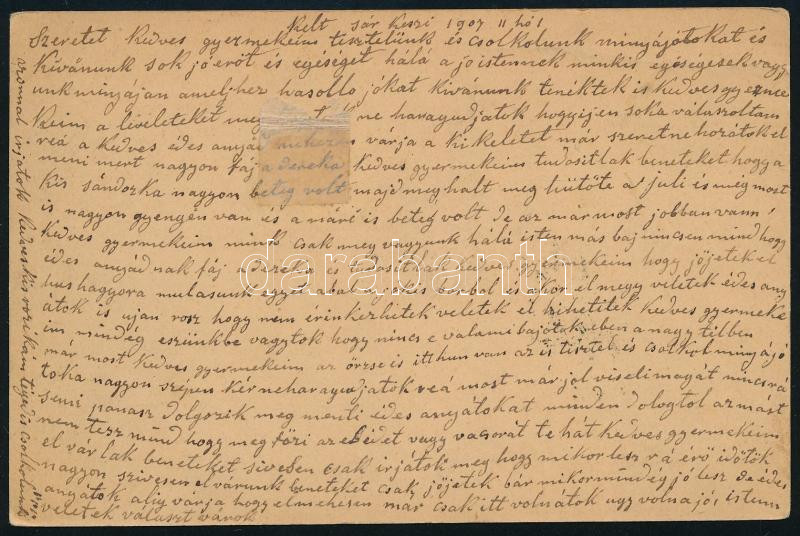 Kelt Sár Keszi 1907 11 hó 1
Szeretet Kedves gyermekeim tisztelünk és csolkolunk minyájótokat és
Kívánunk sok jó erőt és egeséget hálá a jo istennek minkis egeségesek vagy
unk minyájan ameljhez hasollo jókat kívánunk tenéktek is Kedves gyerme
Keim a leveleteket me ne haragudjatok hogy ijen soka válaszoltam
reá a kedves édes anyád nehezen várja a ki keletet már szeretne hozátok el
meni mert nagyon fáj a dereka Kedves gyermekeim tudositlak beneteket hogy a
Kis sándorka nagyon beteg volt majd meg halt meg hütöte a juli és meg most
is nagyon gyengén van és a máré is beteg volt de az már most jobban van
Kedves gyermekeim mink csak meg vagyunk hálá isten más baj nincsen mind hogy
édes anyád nak fáj a dereka és tudositlak Kedves gyermekeim hogy jöjetek el
hus hagyora mulasunk egyet a jó kis borbol és akor el megy veletek édes any
átok is ujan rosz hogy nem érinkezhitek veletek el hihetitek Kedves gyermeke
im mindég eszünkbe vagytok hogy nincs e valami bajotok eben a nagy télben
már most Kedves gyermekeim az örzse is itthun van az is tisztel és csolkol minyájó
toka nagyon szépen kér ne haragudjatok reá most már jol viseli magát nincs rá
semi panasz dolgozik meg menti édes anyátokat minden dologtol az mást
nem tesz mind hogy meg főzi az ebédet vagy vacsorát te hát Kedves gyermekeim
el várlak beneteket sivesen csak irjátok meg hogy mikor lesz rá érő idötök
nagyon szivesen el várunk beneteket csak jöjetek bár mikor mindég jó lesz de édes
anyátok alig várja hogy el mehesen már csak itt volnátok ugy volna jó, istenn
veletek választ várok
irjatok Kedves Kis rózikám téged is csolkolunk
darabanth